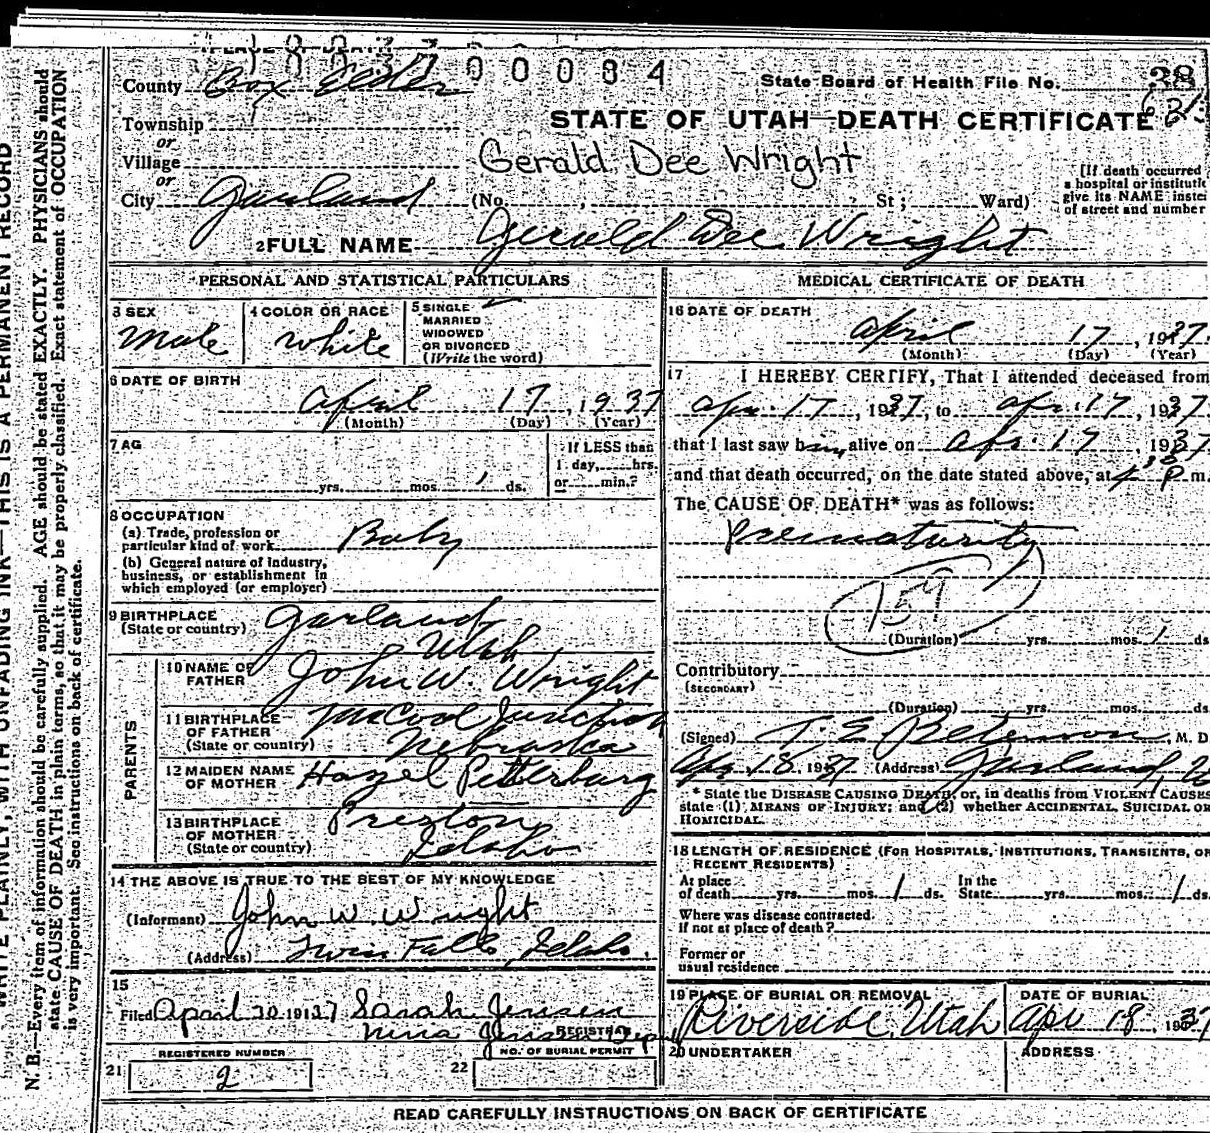 PLACE OF DEATH
1 8 0 3 7 0 0 0 8 4
County Box Elder
State Board of Health File No. 38
Township
or
Village
or
City Garland
STATE OF UTAH—DEATH CERTIFICATE
Gerald Dee Wright
(No. St; Ward)
[If death occurred
a hospital or institutic
give its NAME instei
of street and number
2 FULL NAME Gerald Dee Wright
PERSONAL AND STATISTICAL PARTICULARS
3 SEX
Male
4 COLOR OR RACE
White
5 SINGLE
MARRIED
WIDOWED
OR DIVORCED
(Write the word)
6 DATE OF BIRTH
April 17, 1937
(Month) (Day) (Year)
7 AG
yrs. mos. 1 ds.
If LESS than
1 day, hrs.
or min.?
8 OCCUPATION
(a) Trade, profession or
particular kind of work Baby
(b) General nature of industry,
business, or establishment in
which employed (or employer)
9 BIRTHPLACE
(State or country) Garland
Utah
PARENTS
10 NAME OF
FATHER John W. Wright
11 BIRTHPLACE
OF FATHER
(State or country) McCool Junction
Nebraska
12 MAIDEN NAME
OF MOTHER Hazel Petterburg
13 BIRTHPLACE
OF MOTHER
(State or country) Preston
Idaho
14 THE ABOVE IS TRUE TO THE BEST OF MY KNOWLEDGE
(Informant) John W. Wright
(Address) Twin Falls, Idaho.
15
Filed April 20 1937 Sarah Jensen
Nina Jensen Dep
REGISTRAR
REGISTERED NUMBER
21 2
NO. OF BURIAL PERMIT
22
MEDICAL CERTIFICATE OF DEATH
16 DATE OF DEATH
April 17, 1937
(Month) (Day) (Year)
17 I HEREBY CERTIFY, That I attended deceased from
Apr. 17, 1937, to Apr. 17, 1937
that I last saw him alive on Apr. 17 1937
and that death occurred, on the date stated above, at P m.
The CAUSE OF DEATH* was as follows:
Prematurity
159
(Duration) yrs. mos. 1 ds
Contributory
(SECONDARY)
(Duration) yrs. mos. ds
(Signed) T. E. Peterson, M. D
Apr 18, 1937 (Address) Garland, U
* State the DISEASE CAUSING DEATH; or, in deaths from VIOLENT CAUSES
state (1) MEANS OF INJURY; and (2) whether ACCIDENTAL, SUICIDAL OR
HOMICIDAL.
18 LENGTH OF RESIDENCE (FOR HOSPITALS, INSTITUTIONS, TRANSIENTS, OR
RECENT RESIDENTS)
At place
of death yrs. mos. 1 ds.
In the
State yrs. mos. 1 ds.
Where was disease contracted,
if not at place of death?
Former or
usual residence
19 PLACE OF BURIAL OR REMOVAL
Riverside, Utah
DATE OF BURIAL
Apr 18, 1937
20 UNDERTAKER
ADDRESS
READ CAREFULLY INSTRUCTIONS ON BACK OF CERTIFICATE
WRITE PLAINLY, WITH UNFADING INK—THIS IS A PERMANENT RECORD
N. B.—Every item of information should be carefully supplied. AGE should be stated EXACTLY. PHYSICIANS should
state CAUSE OF DEATH in plain terms, so that it may be properly classified. Exact statement of OCCUPATION
is very important. See instructions on back of certificate.